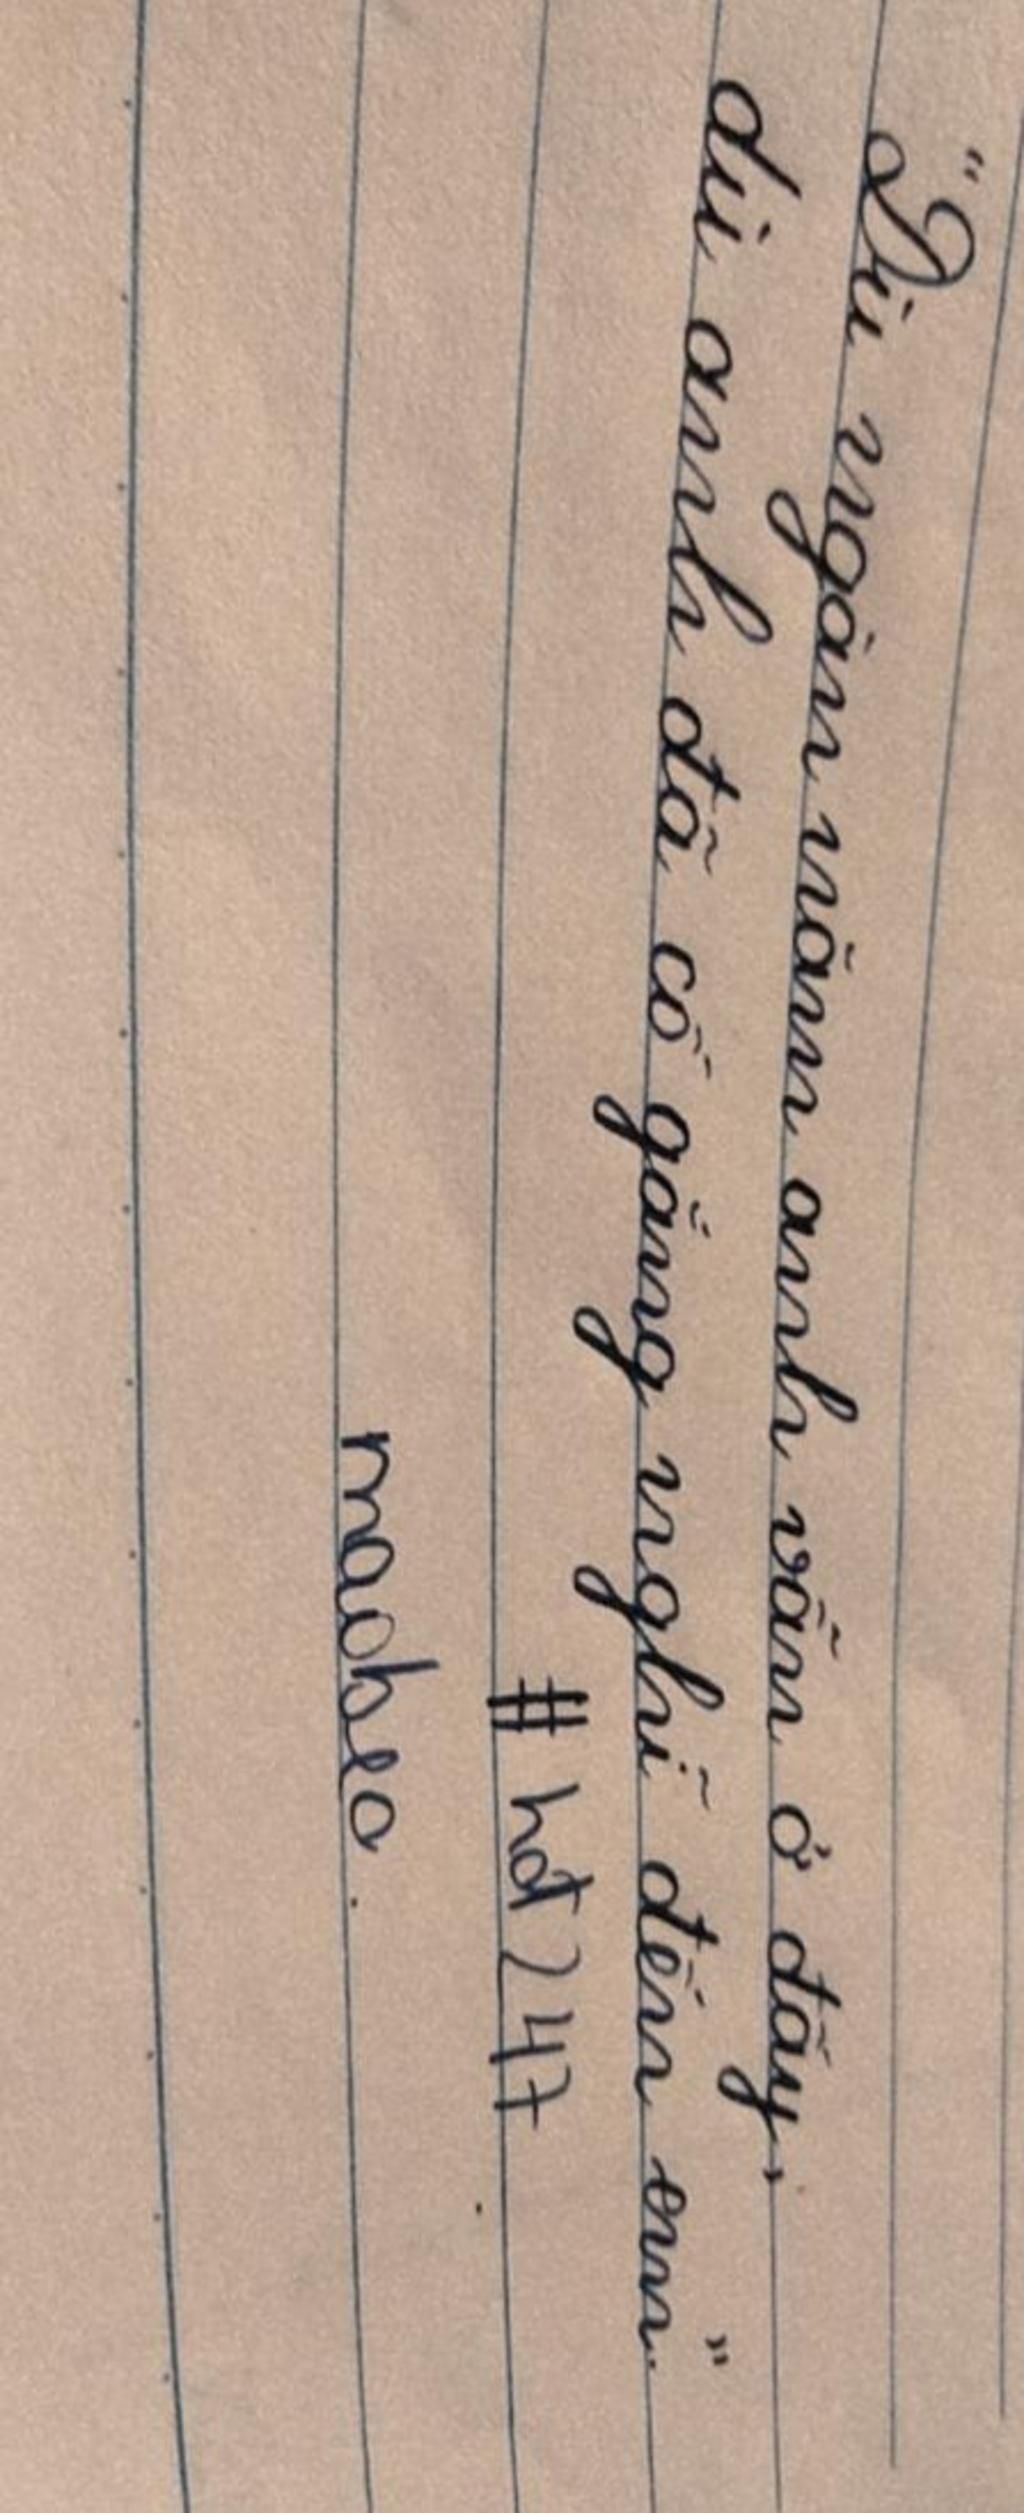 "Dù ngàn năm anh vẫn ở đấy,
dù anh đã cố gắng nghĩ đến em."
#hđt247
maobeo.